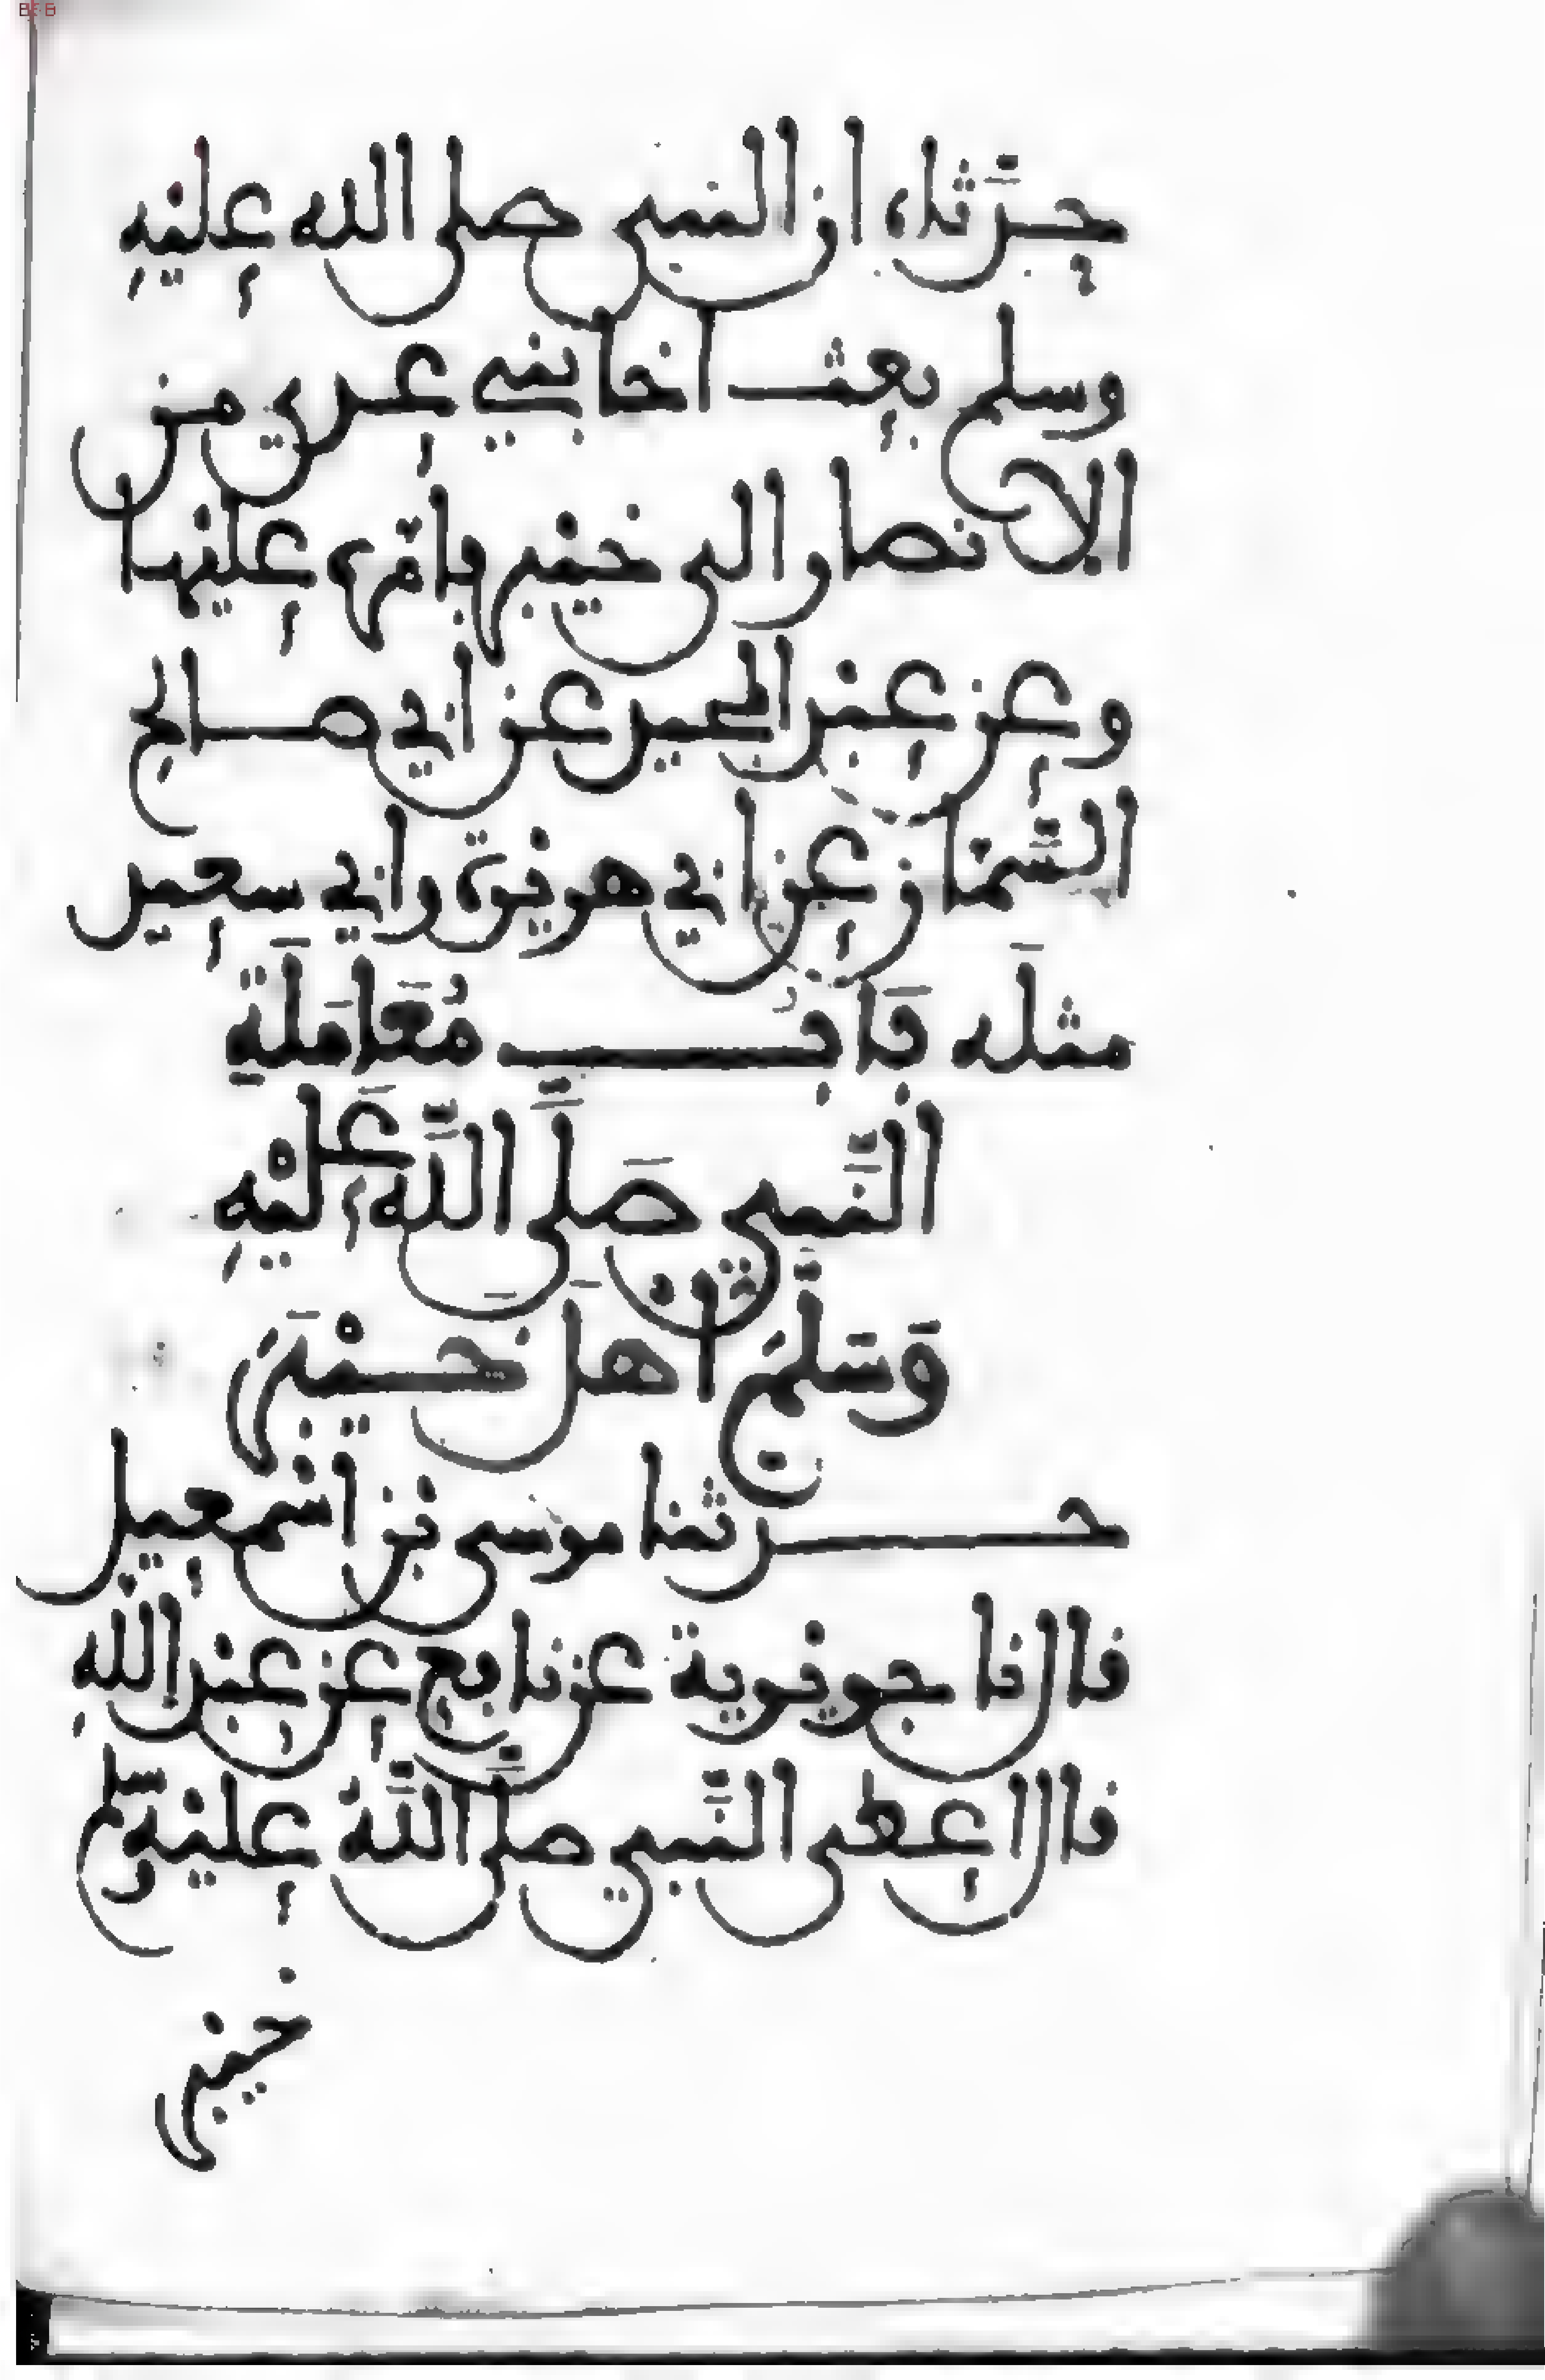 حدَّثاه ان النبي صلى الله عليه
وسلم بعث اخا بني عدي من
الانصار الى خيبر فامره عليها
وعن عبد المجيد عن ابي صالح
السَّمان عن ابي هريرة وابي سعيد
مثلَه بَاب مُعَامَلَةِ
النَّبي صَلَّى اللَّه عَلَيْهِ
وَسَلَّمَ اهلَ خيْبَرَ
حدثنا موسى بن اسْمعيل
قال نا جويرية عن نافع عن عبد اللهِ
قال اعطى النَّبي صلَّى اللَّهُ عليه وسلم
خيبر